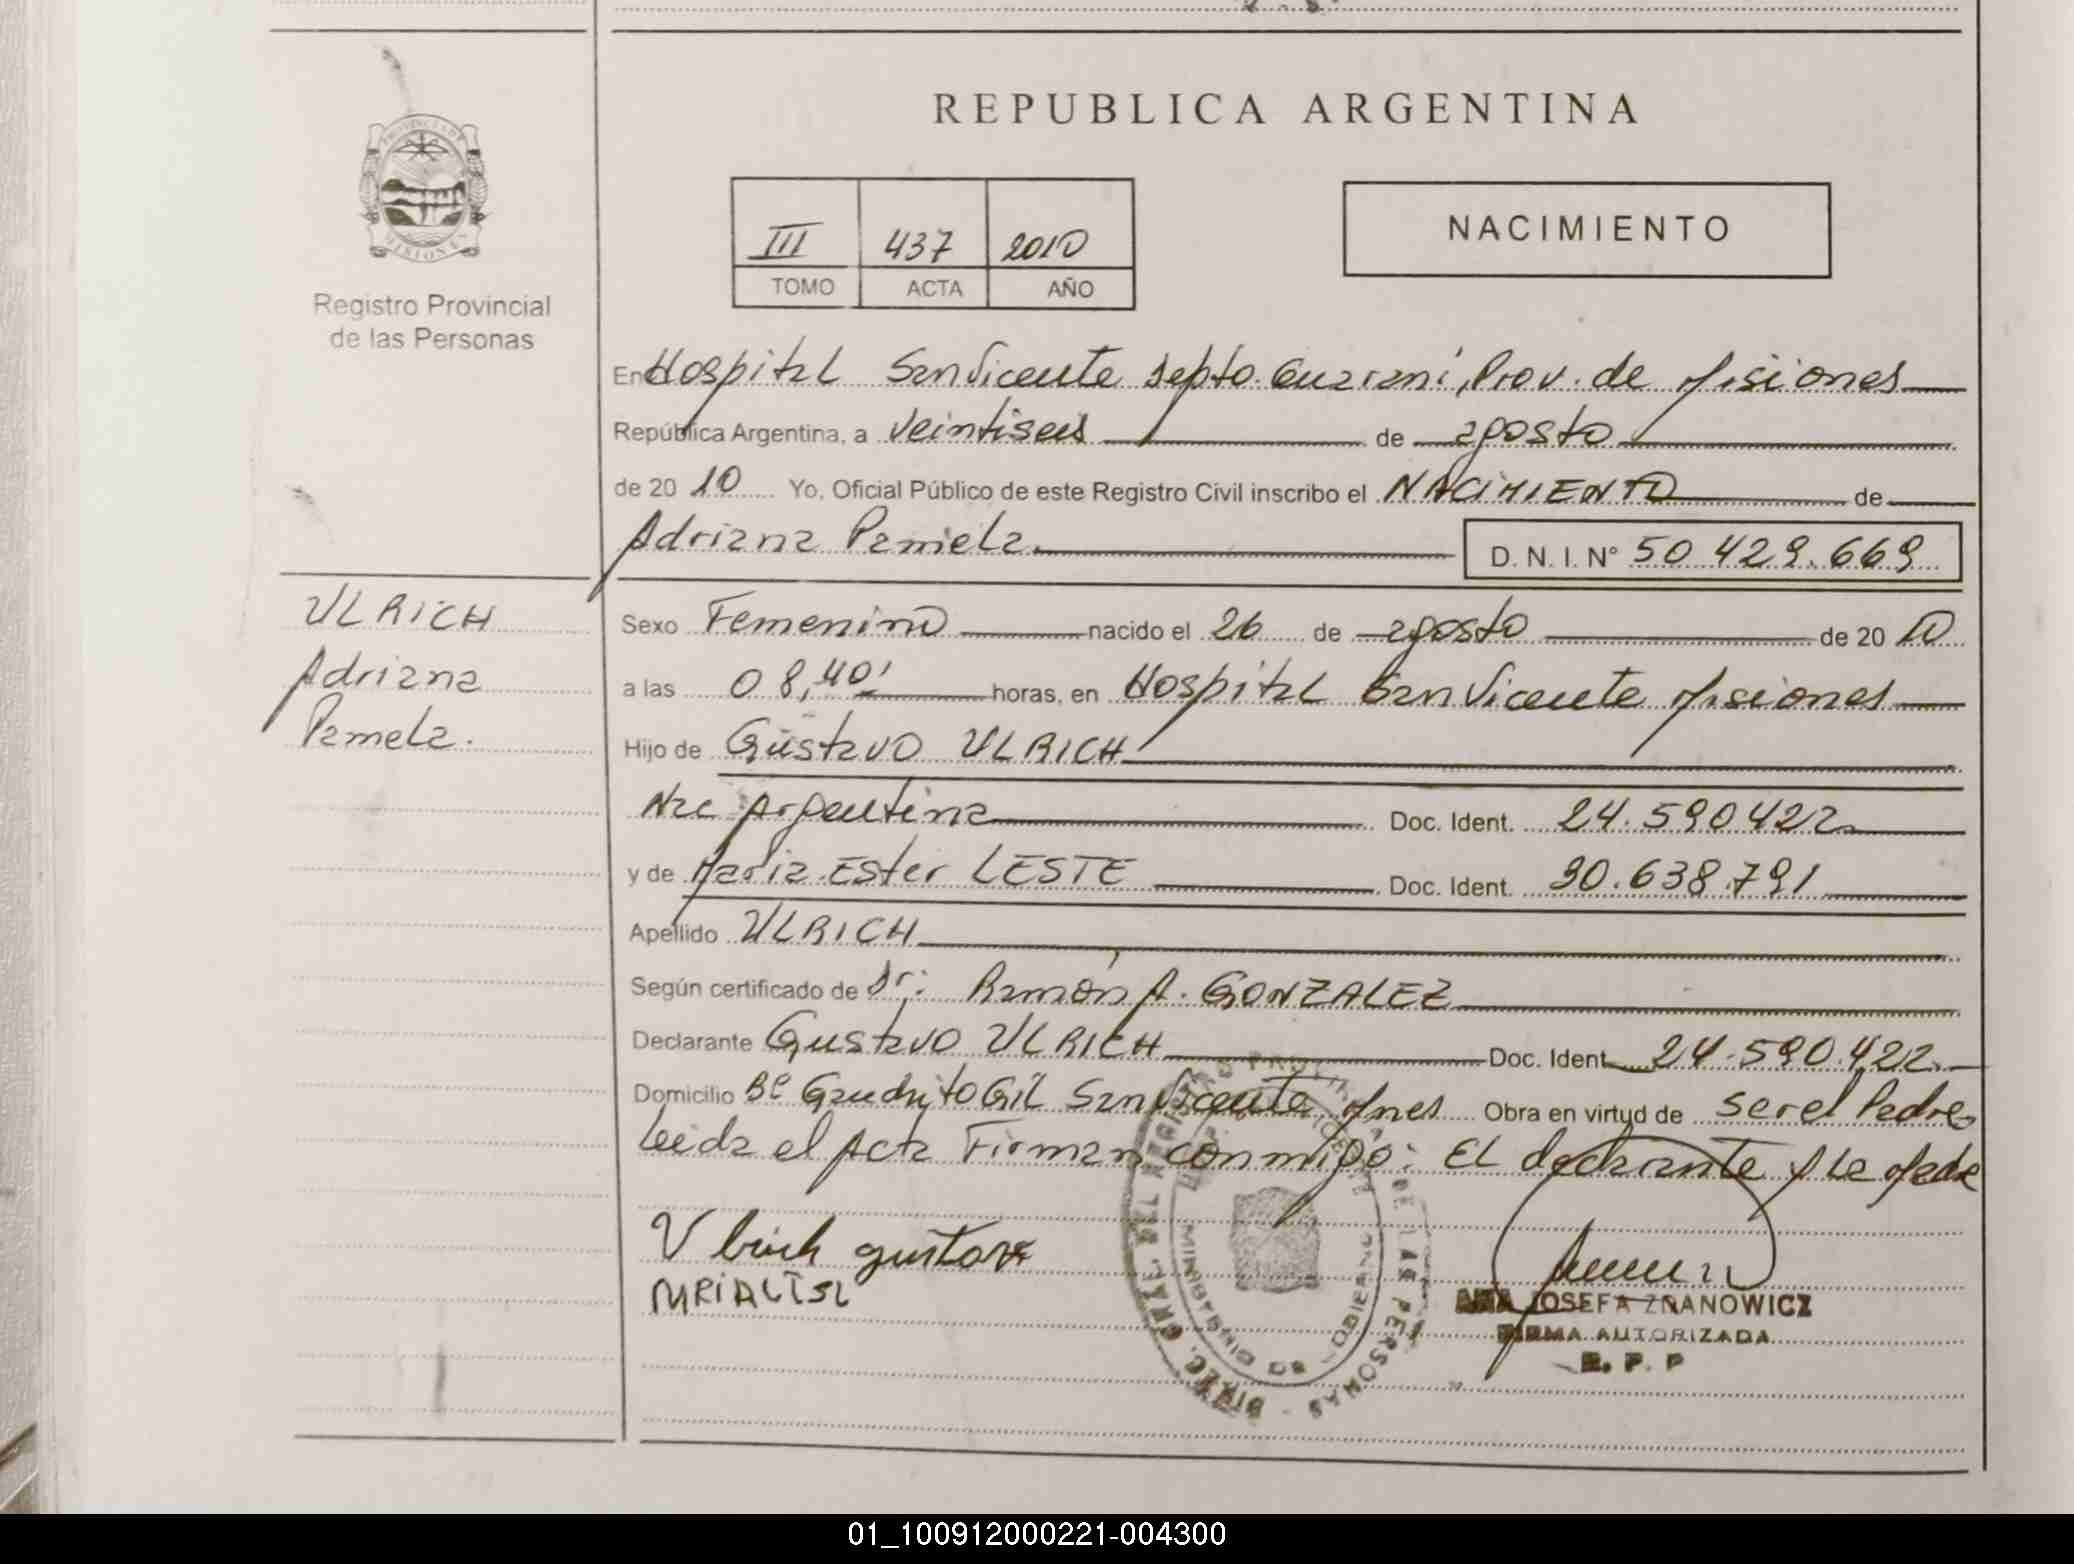 REPUBLICA ARGENTINA
PROVINCIA DE MISIONES
III 437 2010
TOMO ACTA AÑO
NACIMIENTO
Registro Provincial
de las Personas
En Hospital San Vicente Depto. Guarani, Prov. de Misiones
República Argentina, a veintiseis de agosto
de 20 10 Yo, Oficial Público de este Registro Civil inscribo el NACIMIENTO de
Adriana Pamela. D. N. I. Nº 50 429.669
ULRICH
Adriana
Pamela.
Sexo Femenino nacido el 26 de agosto de 20 10
a las 08,40' horas, en Hospital San Vicente Misiones
Hijo de Gustavo ULRICH
Nac Argentina Doc. Ident. 24.590422
y de Maria Ester LESTE Doc. Ident. 30.638.791
Apellido ULRICH
Según certificado de Dr: Ramón A. GONZALEZ
Declarante Gustavo ULRICH Doc. Ident. 24.590.422
Domicilio Bº Gauchito Gil San Vicente Mnes Obra en virtud de ser el Padre
Leida el Acta Firman conmigo: El declarante y la Madre
Ulrich gustavo
DIREC. GRAL. DEL REGISTRO PROVINCIAL DE LAS PERSONAS
MINISTERIO DE GOBIERNO
JOSEFA ZNANOWICZ
FIRMA AUTORIZADA
R. P. P
01_100912000221-004300